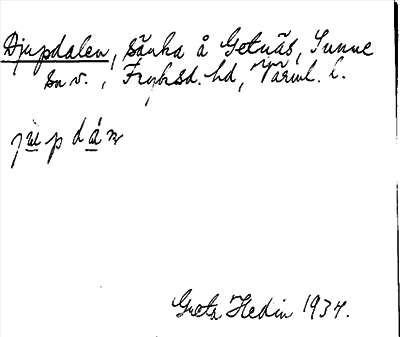 Djupdalen, sänka å Getnäs, Sunne
sn v., Fryksd. hd, Värml. l.
Greta Hedin 1934.